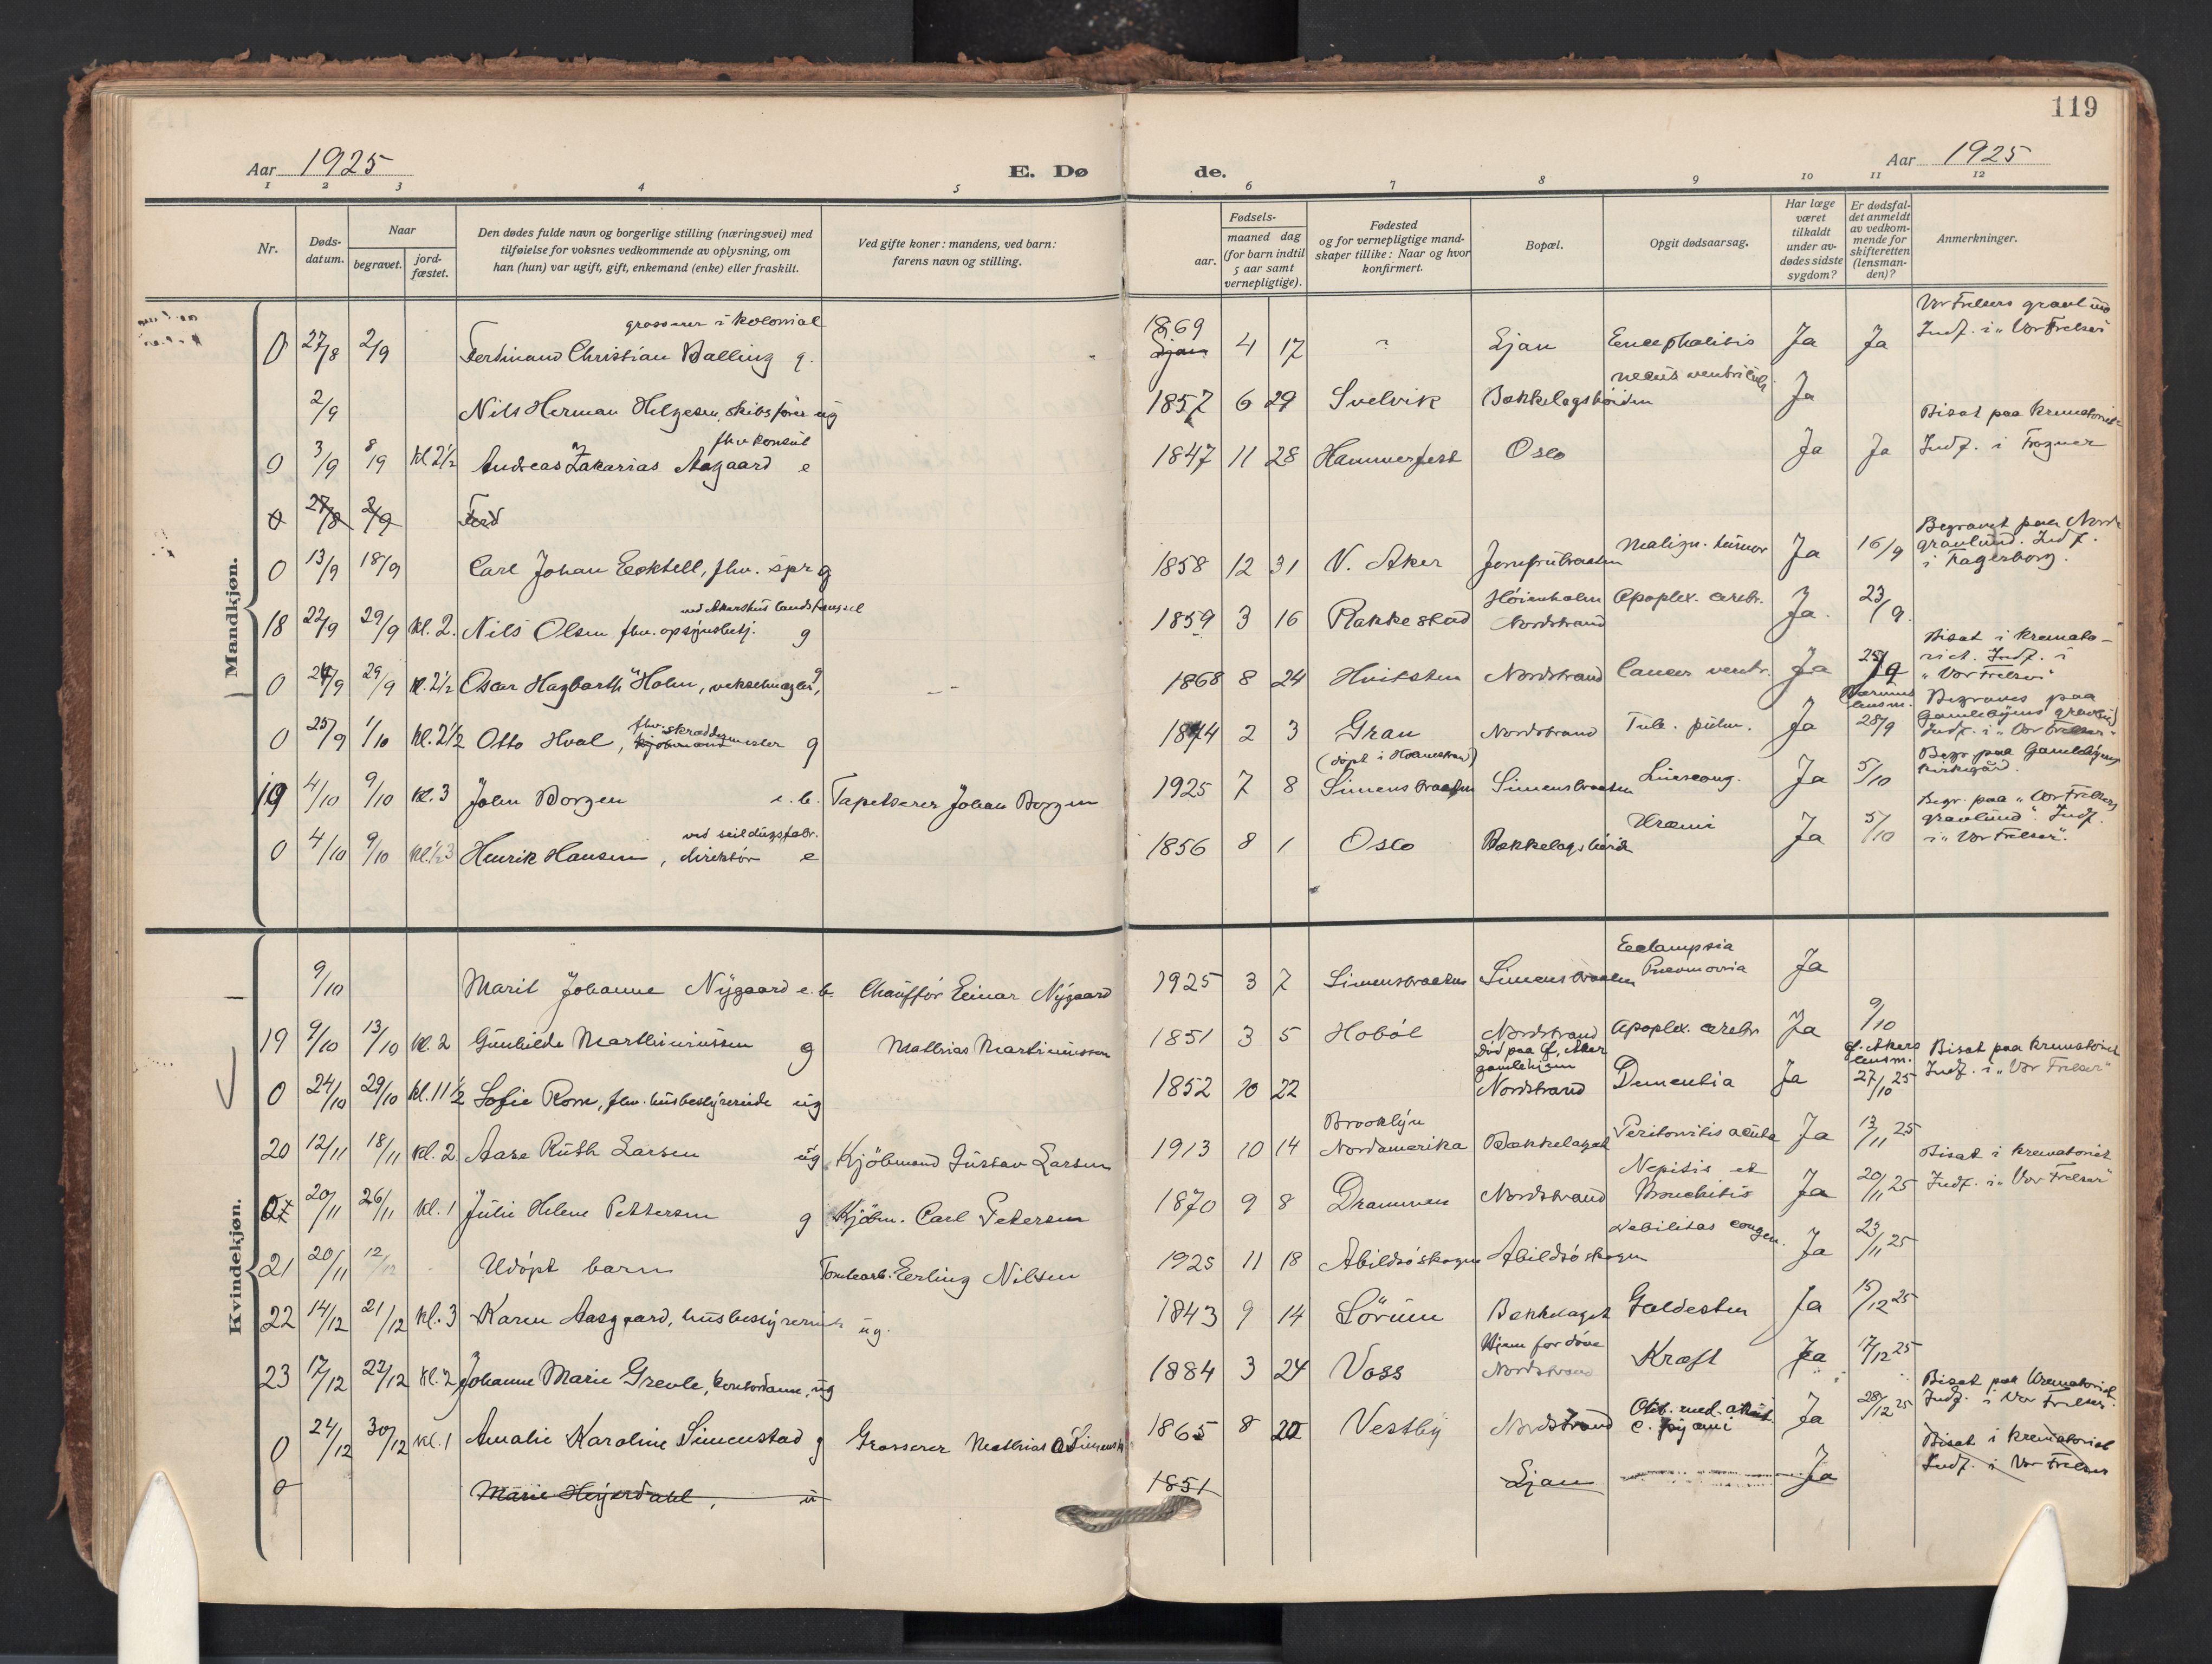 119
Aar 1925 E. Døde. Aar 1925
1 2 3 4 5 6 7 8 9 10 11 12
Nr. Døds-datum. Naar begravet. jord-fæstet. Den dødes fulde navn og borgerlige stilling (næringsvei) med tilføielse for voksnes vedkommende av oplysning, om han (hun) var ugift, gift, enkemand (enke) eller fraskilt. Ved gifte koner: mandens, ved barn: farens navn og stilling. Fødsels- aar. maaned dag (for barn indtil 5 aar samt vernepligtige). Fødested og for vernepligtige mand-skaper tillike: Naar og hvor konfirmert. Bopæl. Opgit dødsaarsag. Har læge været tilkaldt under av-dødes sidste sygdom? Er dødsfal-det anmeldt av vedkom-mende for skifteretten (lensman-den)? Anmerkninger.
Mandkjøn.
0 27/8 2/9 Ferdinand Christian Balling grosserer i kolonial g. 1869 Ljan 4 17 " Ljan Encephalitis Ja Ja Vor Frelsers gravlund Indf. i "Vor Frelser"
2/9 Nils Herman Helgesen, skibsfører ug 1857 6 29 Svelvik Bækkelagshøiden Ja
0 3/9 8/9 Kl 2½ Andreas Zakarias Aagaard fhv konsul e 1847 11 28 Hammerfest Oslo Ja Ja Bisat paa krematoriet Indf. i Frogner
0 27/8 2/9 Ferd
0 13/9 18/9 Carl Johan Eektell, fhv. spr g 1858 12 31 V. Aker Jomfrubraaten Malign. tumor Ja 16/9 Begravet paa Nordre gravlund. Indf. i Fagerborg.
18 22/9 29/9 Kl. 2. Nils Olsen fhv. opsynsbetj. ved Akershus landsfængsel g 1859 3 16 Rakkestad Høienholm Nordstrand Apoplex. cerebr. Ja. 23/9
0 24/9 29/9 Kl. 2½ Oscar Hagbarth Holm, vekselmægler, g 1868 8 24 Hvitsten Nordstrand Cancer ventr. Ja 25/9 Bisat i kremato-riet. Indf. i "Vor Frelser"
0 25/9 1/10 Kl. 2½ Otto Hval, fhv. skræddermester kjøbmand g 1874 2 3 Gran Nordstrand Tub. pulm. Ja Bærums lensm. 28/9 Begraves paa Gamlebyens gravlund Indf. i "Vor Frelser"
19 4/10 9/10 Kl. 3 John Borgen e. b. Tapetserer Johan Borgen 1925 7 8 (døpt i Holmestrand) Simensbraaten Simensbraaten Ja 5/10 Begr. paa Gamlebyens kirkegård.
0 4/10 9/10 Kl. ½3 Henrik Hansen, direktør ved seildugsfabr. e 1856 8 1 Oslo Bækkelagshøide Uræmi Ja 5/10 Begr. paa "Vor Frelsers gravlund". Indf. i "Vor Frelser".
Kvindekjøn.
— 9/10 Marit Johanne Nygaard e. b. Chauffør Einar Nygaard 1925 3 7 Simensbraaten Simensbraaten Eclampsia Pneumonia Ja
19 9/10 13/10 Kl. 2 Gunhilde Marthiniussen g Mathias Martiniussen 1851 3 5 Hobøl Nordstrand Apoplex. cerebr Ja 9/10
0 24/10 29/10 Kl. 11½ Sofie Rom, fhv. husbestyrerinde ug 1852 10 22 Død paa Ø. Aker gamlehjem Nordstrand Dementia Ja Ø. Akers lensm. 27/10 25 Bisat paa krematoriet Indf. i "Vor Frelser"
20 12/11 18/11 Kl. 2 Aase Ruth Larsen ug Kjøbmand Gustav Larsen 1913 10 14 Brooklyn Nordamerika Bækkelaget Peritonitis acuta Ja 13/11 25
0 20/11 26/11 Kl. 1 Julie Helene Pettersen g Kjøbm. Carl Petersen 1870 9 8 Drammen Nordstrand Nepitis et Bronchitis Ja 20/11 25 Bisat i krematoriet Indf. i "Vor Frelser"
21 20/11 12/12 Udøpt barn Tomtearb. Eerling Nilsen 1925 11 18 Abildsøskogen Abildsøskogen Debilitas congen. Ja 23/11 25
22 14/12 21/12 Kl. 3 Karen Aasgaard, husbestyrerinde ug. 1843 9 14 Sørum Bækkelaget Galdesten Ja 15/12 25
23 17/12 22/12 Kl. 2 Johanne Marie Grevle, kontordame, ug 1884 3 24 Voss Hjem for døve Nordstrand Kræft Ja 17/12 25
0 24/12 30/12 Kl. 1 Amalie Karoline Simenstad g Grosserer Mathias O Simenstad 1865 8 20 Vestby Nordstrand Otit. med. c. pyæmi Ja 28/12 25 Bisat paa Krematoriet Indf. i Vor Frelser.
0 Marie Heyerdahl, u 1851 Ljan Ja Bisat i krematoriet Indf. i Vor Frelser